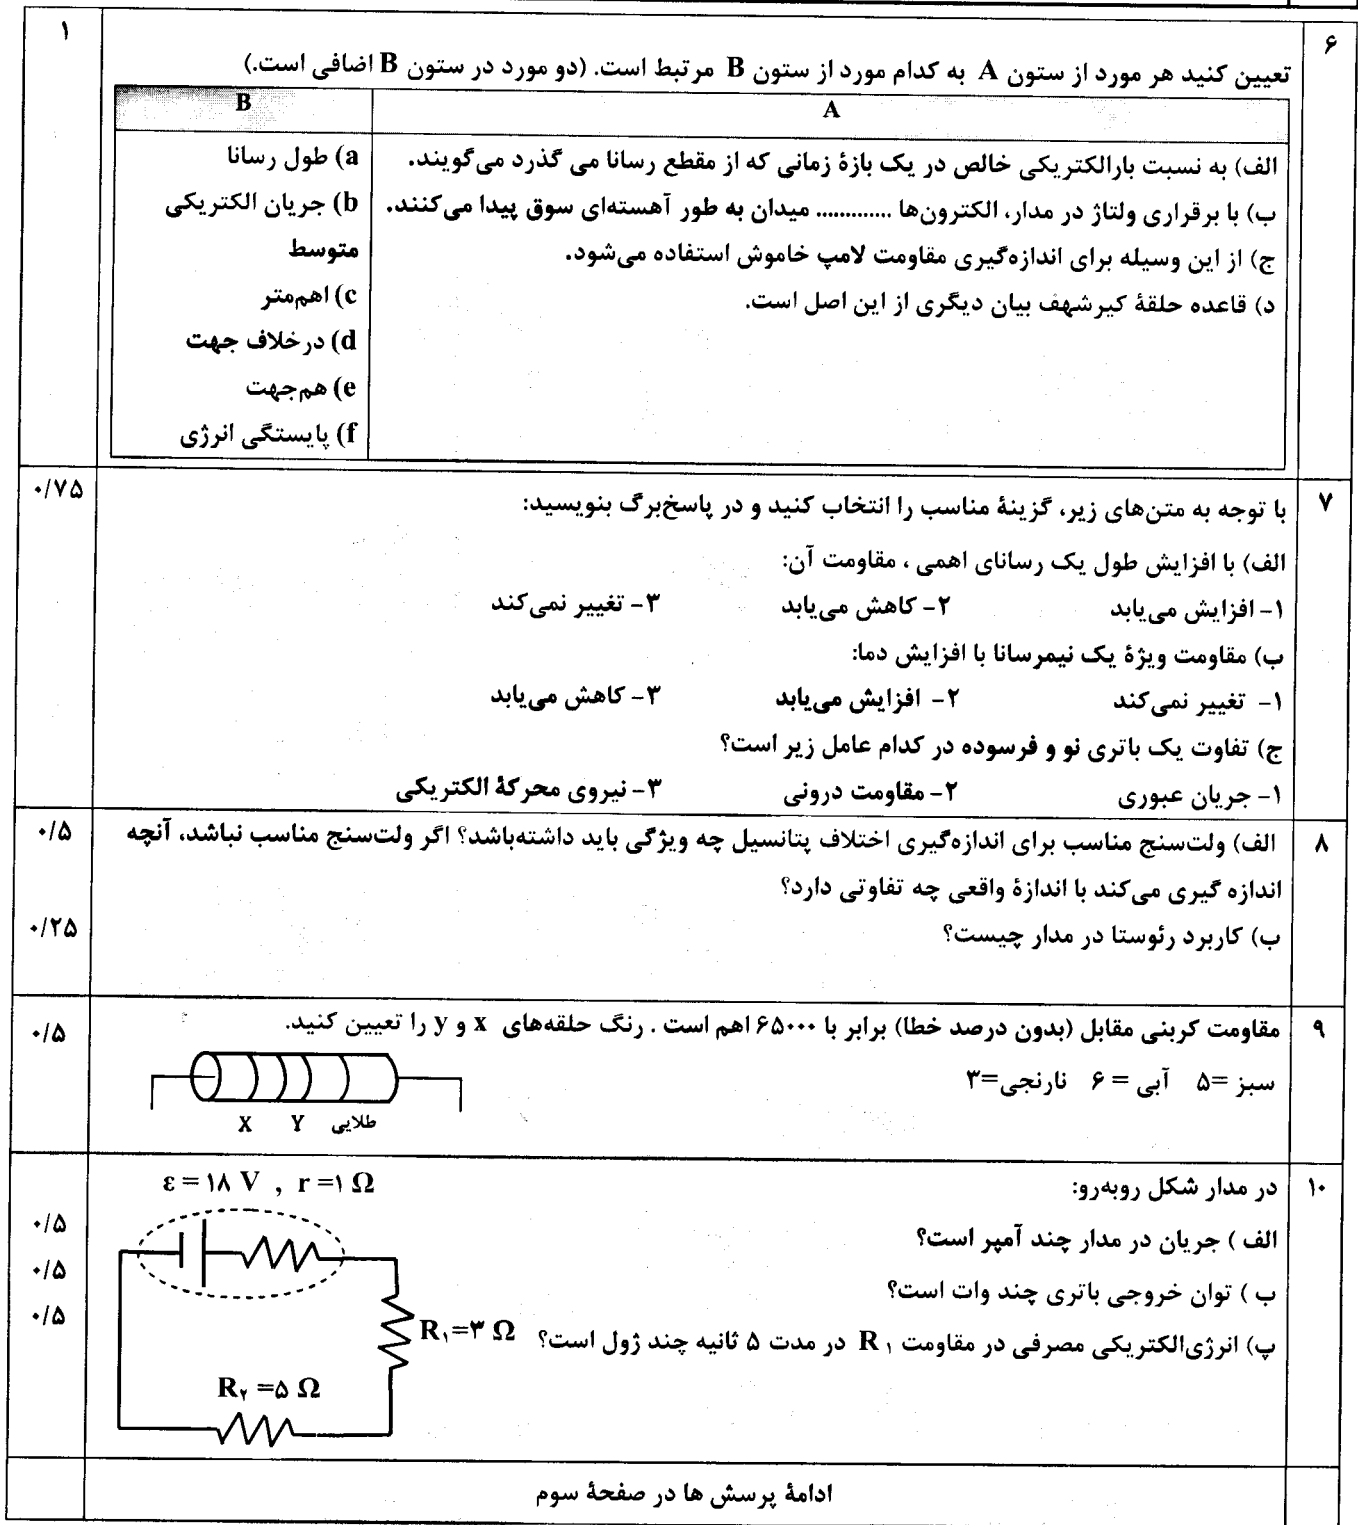 ۶
۱
تعیین کنید هر مورد از ستون A به کدام مورد از ستون B مرتبط است. (دو مورد در ستون B اضافی است.)
A
B
الف) به نسبت بارالکتریکی خالص در یک بازهٔ زمانی که از مقطع رسانا می گذرد می‌گویند.
ب) با برقراری ولتاژ در مدار، الکترون‌ها ............. میدان به طور آهسته‌ای سوق پیدا می‌کنند.
ج) از این وسیله برای اندازه‌گیری مقاومت لامپ خاموش استفاده می‌شود.
د) قاعده حلقهٔ کیرشهف بیان دیگری از این اصل است.
a) طول رسانا
b) جریان الکتریکی
متوسط
c) اهم‌متر
d) درخلاف جهت
e) هم‌جهت
f) پایستگی انرژی
۷
۰/۷۵
با توجه به متن‌های زیر، گزینهٔ مناسب را انتخاب کنید و در پاسخ‌برگ بنویسید:
الف) با افزایش طول یک رسانای اهمی ، مقاومت آن:
۱- افزایش می‌یابد ۲- کاهش می‌یابد ۳- تغییر نمی‌کند
ب) مقاومت ویژهٔ یک نیمرسانا با افزایش دما:
۱- تغییر نمی‌کند ۲- افزایش می‌یابد ۳- کاهش می‌یابد
ج) تفاوت یک باتری نو و فرسوده در کدام عامل زیر است؟
۱- جریان عبوری ۲- مقاومت درونی ۳- نیروی محرکهٔ الکتریکی
۸
۰/۵
الف) ولت‌سنج مناسب برای اندازه‌گیری اختلاف پتانسیل چه ویژگی باید داشته‌باشد؟ اگر ولت‌سنج مناسب نباشد، آنچه
اندازه گیری می‌کند با اندازهٔ واقعی چه تفاوتی دارد؟
ب) کاربرد رئوستا در مدار چیست؟
۰/۲۵
۹
۰/۵
مقاومت کربنی مقابل (بدون درصد خطا) برابر با ۶۵۰۰۰ اهم است . رنگ حلقه‌های x و y را تعیین کنید.
سبز =۵ آبی = ۶ نارنجی=۳
X Y طلایی
۱۰
در مدار شکل روبه‌رو:
ε = ۱۸ V , r =۱ Ω
الف ) جریان در مدار چند آمپر است؟
۰/۵
ب ) توان خروجی باتری چند وات است؟
۰/۵
پ) انرژی‌الکتریکی مصرفی در مقاومت R۱ در مدت ۵ ثانیه چند ژول است؟
۰/۵
R۱=۳ Ω
R۲ =۵ Ω
ادامهٔ پرسش ها در صفحهٔ سوم